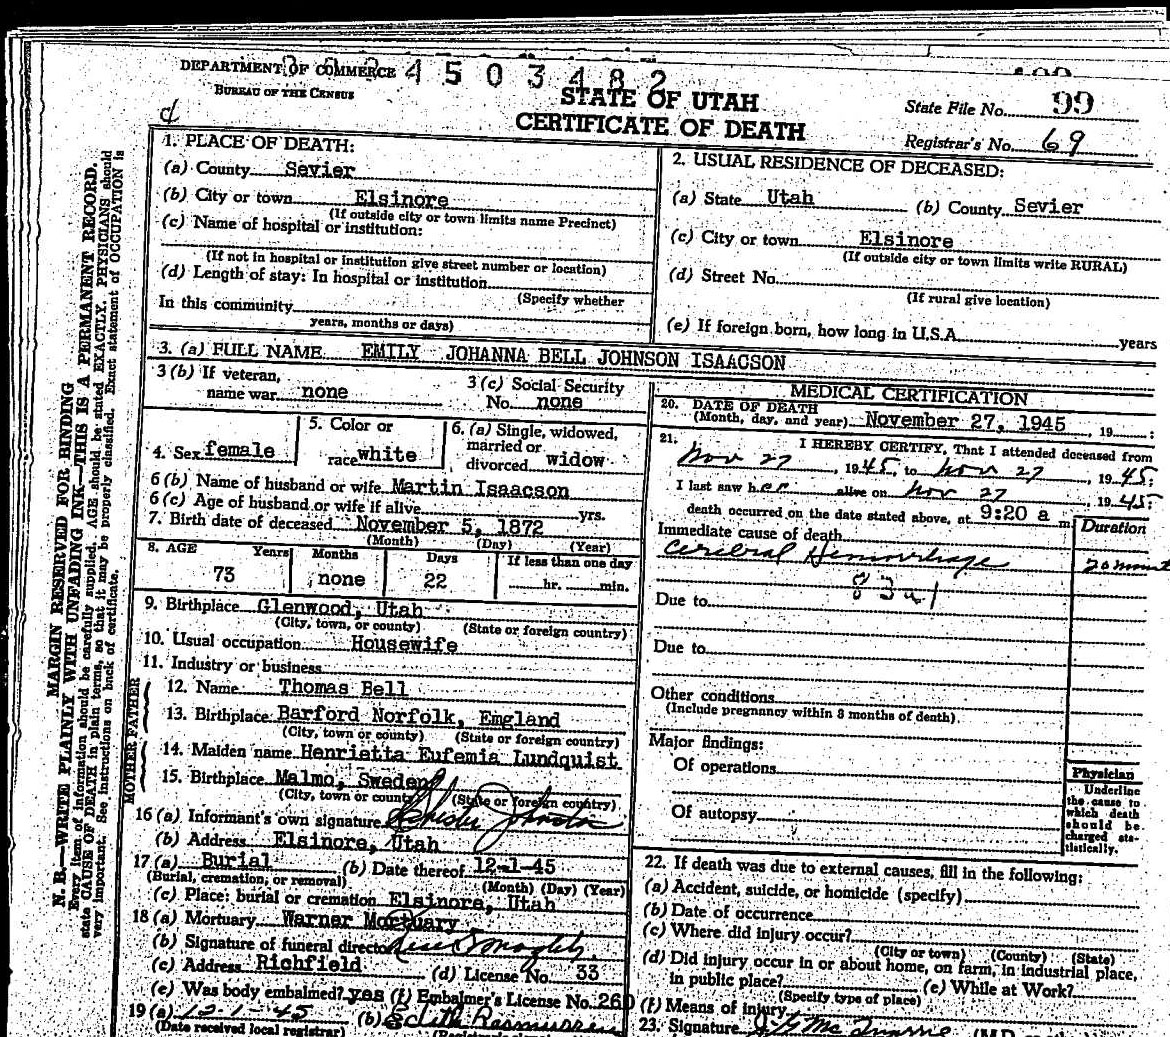 DEPARTMENT OF COMMERCE 4 5 0 3 4 8 2
BUREAU OF THE CENSUS
STATE OF UTAH
CERTIFICATE OF DEATH
State File No. 99
Registrar's No. 69
MARGIN RESERVED FOR BINDING
N. B.—WRITE PLAINLY WITH UNFADING INK—THIS IS A PERMANENT RECORD.
Every item of information should be carefully supplied. AGE should be stated EXACTLY. PHYSICIANS should
state CAUSE OF DEATH in plain terms, so that it may be properly classified. Exact statement of OCCUPATION is
very important. See instructions on back of certificate.
1. PLACE OF DEATH:
(a) County Sevier
(b) City or town Elsinore
(If outside city or town limits name Precinct)
(c) Name of hospital or institution:
(If not in hospital or institution give street number or location)
(d) Length of stay: In hospital or institution
(Specify whether
In this community
years, months or days)
2. USUAL RESIDENCE OF DECEASED:
(a) State Utah (b) County Sevier
(c) City or town Elsinore
(If outside city or town limits write RURAL)
(d) Street No.
(If rural give location)
(e) If foreign born, how long in U.S.A. years
3. (a) FULL NAME EMILY JOHANNA BELL JOHNSON ISAACSON
3 (b) If veteran,
name war none
3 (c) Social Security
No. none
4. Sex female
5. Color or
race white
6. (a) Single, widowed,
married or
divorced widow
6 (b) Name of husband or wife Martin Isaacson
6 (c) Age of husband or wife if alive yrs.
7. Birth date of deceased November 5, 1872
(Month) (Day) (Year)
8. AGE Years Months Days If less than one day
73 none 22 hr. min.
9. Birthplace Glenwood, Utah
(City, town, or county) (State or foreign country)
10. Usual occupation Housewife
11. Industry or business
FATHER
12. Name Thomas Bell
13. Birthplace Barford Norfolk, Emgland
(City, town or county) (State or foreign country)
MOTHER
14. Maiden name Henrietta Eufemia Lundquist
15. Birthplace Malmo, Sweden
(City, town or county) (State or foreign country)
16 (a) Informant's own signature
(b) Address Elsinore, Utah
17 (a) Burial (b) Date thereof 12-1-45
(Burial, cremation, or removal) (Month) (Day) (Year)
(c) Place: burial or cremation Elsinore, Utah
18 (a) Mortuary Warner Mortuary
(b) Signature of funeral director
(c) Address Richfield (d) License No. 33
(e) Was body embalmed? yes (f) Embalmer's License No. 260
19 (a) 12-1-45 (b) Edith Rasmussen
(Date received local registrar)
MEDICAL CERTIFICATION
20. DATE OF DEATH
(Month, day, and year) November 27, 1945, 19 :
21. I HEREBY CERTIFY, That I attended deceased from
Nov 27, 1945, to Nov 27, 1945;
I last saw her alive on Nov 27 1945;
death occurred on the date stated above, at 9:20 a m.
Duration
Immediate cause of death
Cerebral Hemorrhage
83a1
Due to
Due to
Other conditions
(Include pregnancy within 3 months of death)
Major findings:
Of operations
Of autopsy
Physician
Underline
the cause to
which death
should be
charged sta-
tistically.
22. If death was due to external causes, fill in the following:
(a) Accident, suicide, or homicide (specify)
(b) Date of occurrence
(c) Where did injury occur?
(City or town) (County) (State)
(d) Did injury occur in or about home, on farm, in industrial place,
in public place? (e) While at Work?
(Specify type of place)
(f) Means of injury
23. Signature